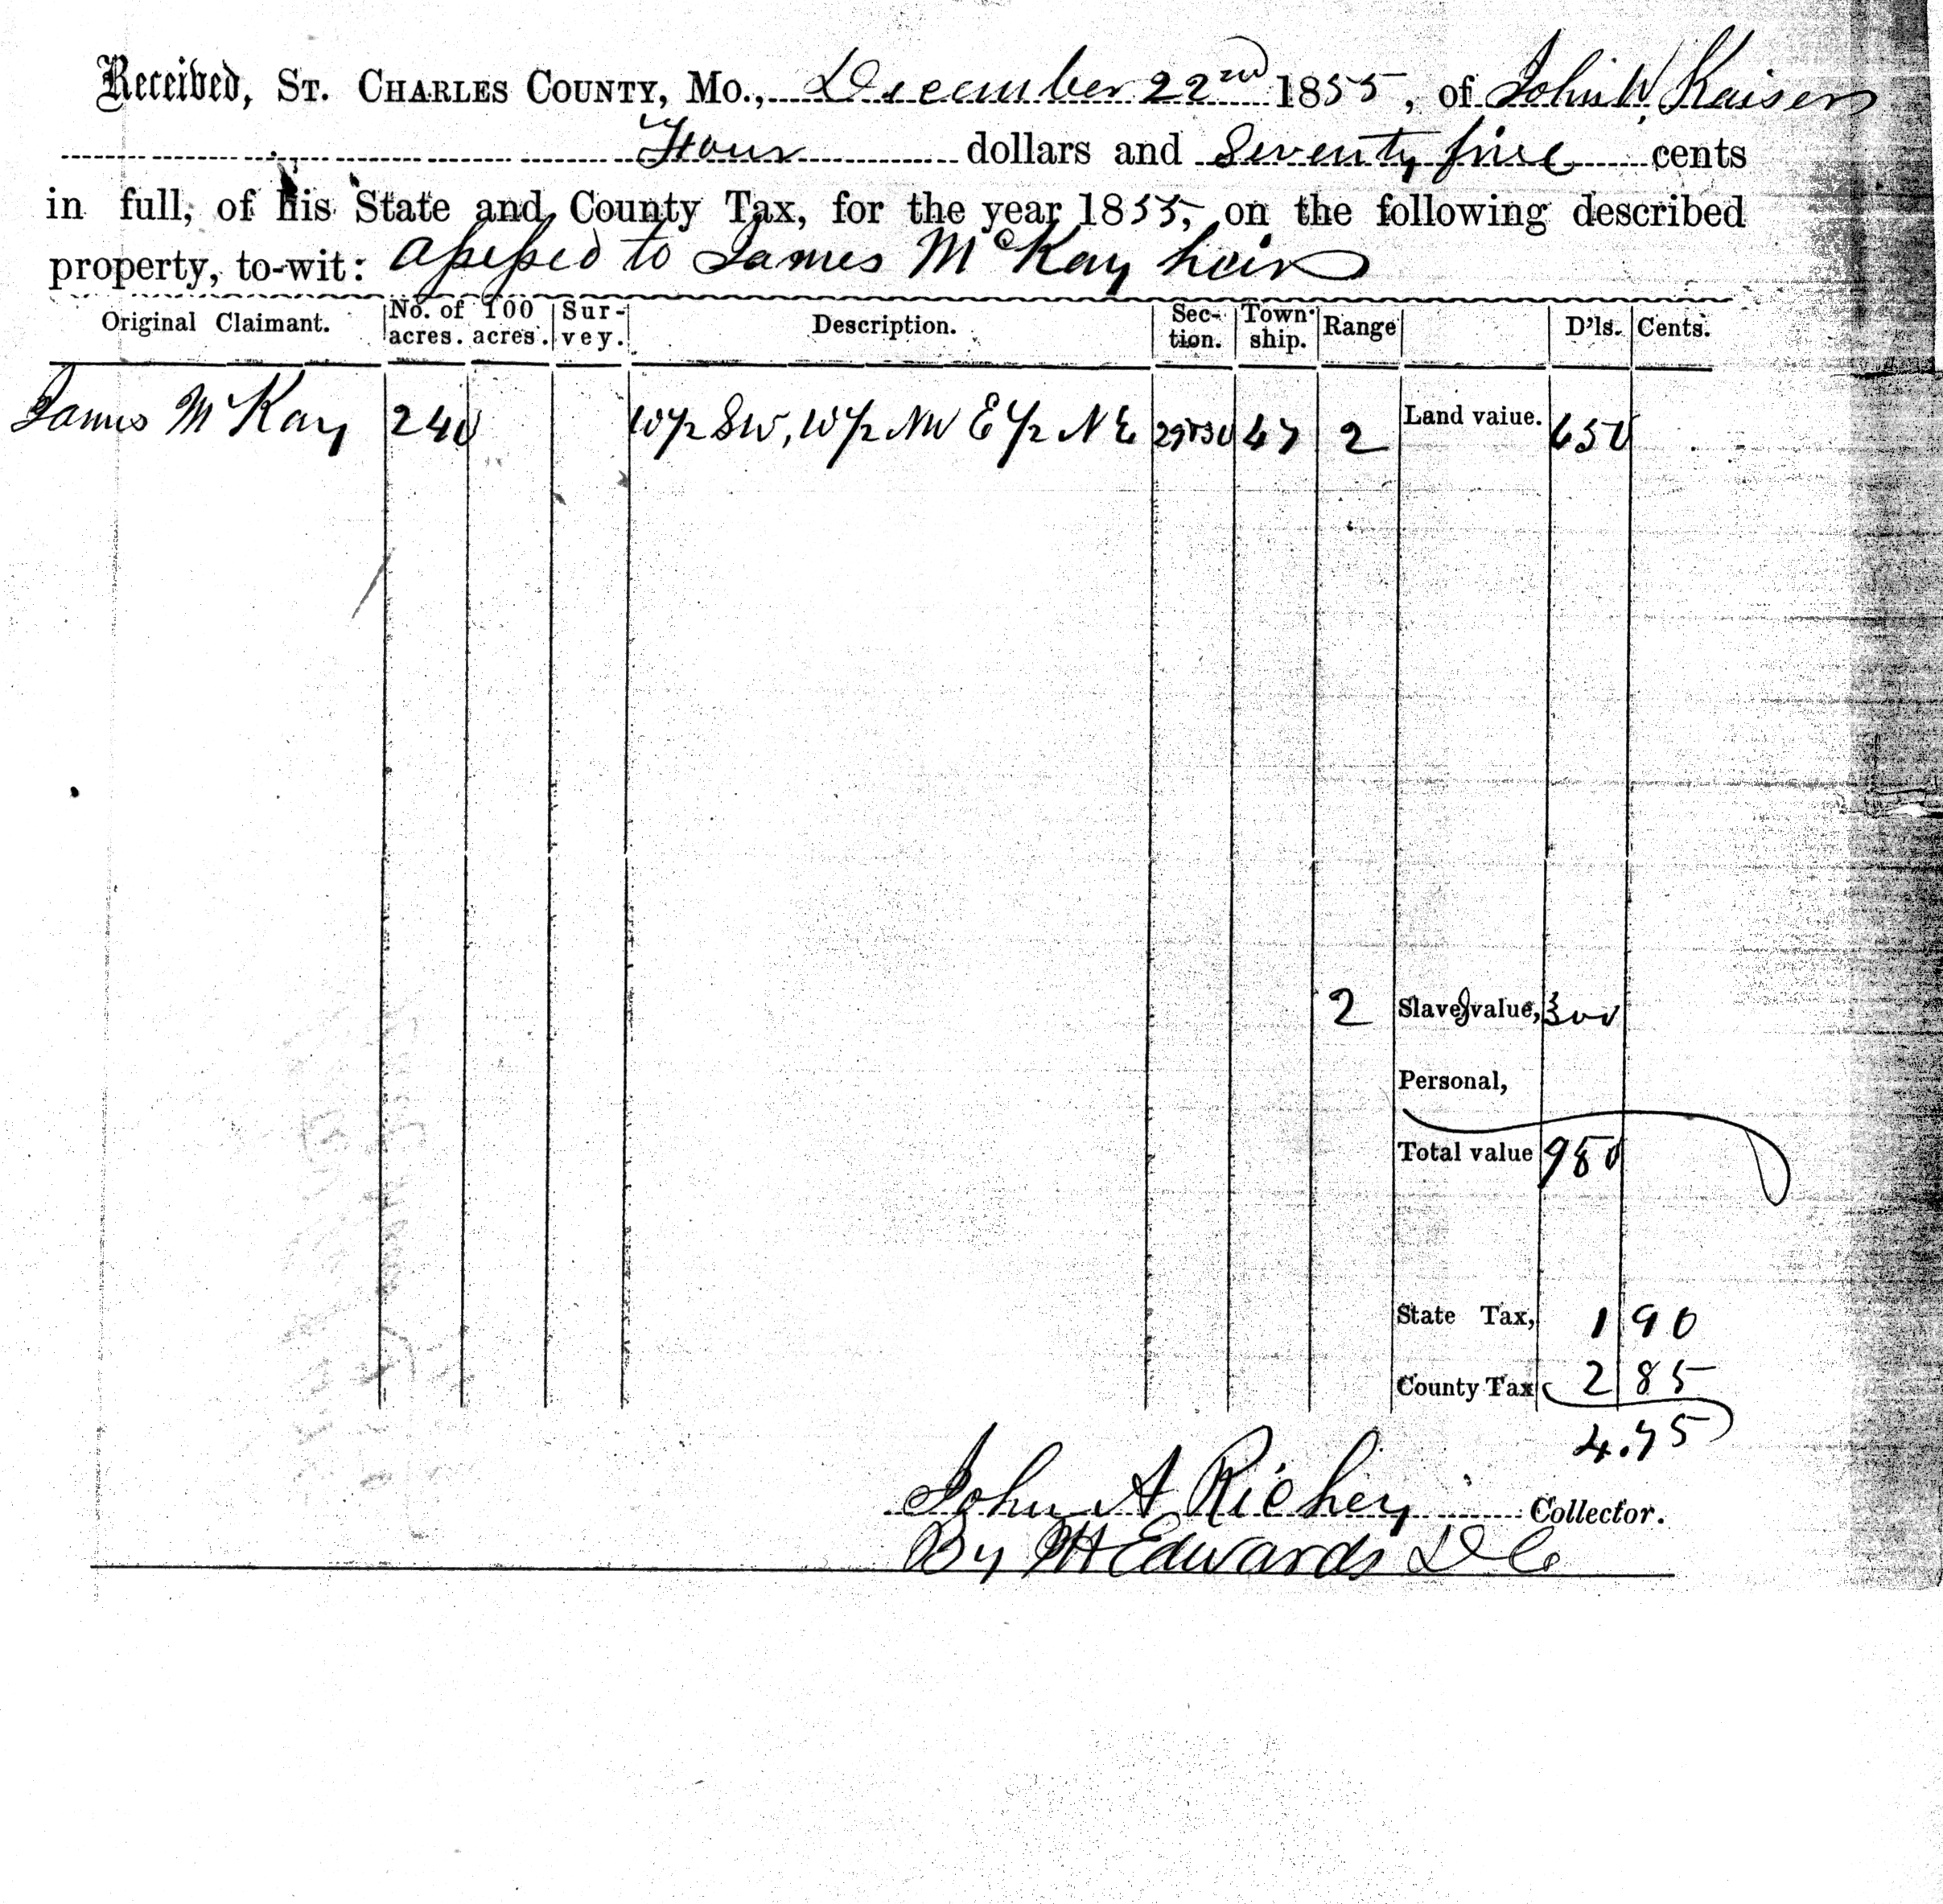 Received, St. Charles County, Mo., December 22nd 1855, of John W. Kaiser
Four dollars and Seventy five cents
in full, of his State and County Tax, for the year 1855, on the following described
property, to-wit: assessed to James McKay heirs
Original Claimant. No. of acres. 100 acres. Survey. Description. Section. Township. Range D'ls. Cents.
James McKay 240 W ½ SW, W ½ NW E ½ NE 29 & 30 47 2 Land value. 650
2 Slaves value, 300
Personal,
Total value 950
State Tax, 1 90
County Tax 2 85
4.75
John A Richey Collector.
By Edwards D C